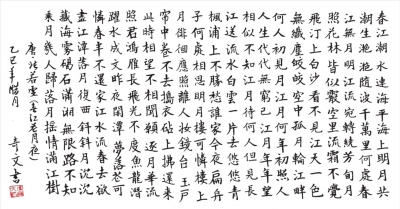 春江潮水連海平海上明月共
潮生灩灩隨波千萬里何處春
江無月明江流宛轉繞芳甸月
照花林皆似霰空里流霜不覺
飛汀上白沙看不見江天一色
無纖塵皎皎空中孤月輪江畔
何人初見月江月何年初照人
人生代代無窮已江月年年望
相似不知江月待何人但見長
江送流水白雲一片去悠悠青
楓浦上不勝愁誰家今夜扁舟
子何處相思明月樓可憐樓上
月徘徊應照離人妝鏡台玉戶
帘中卷不去搗衣砧上拂還來
此時相望不相聞願逐月華流
照君鴻雁長飛光不度魚龍潛
躍水成文昨夜閑潭夢落花可
憐春半不還家江水流春去欲
盡江潭落月復西斜斜月沉沉
藏海霧碣石瀟湘無限路不知
乘月幾人歸落月搖情滿江樹
唐張若虛《春江花月夜》
乙巳年臘月 奇文書